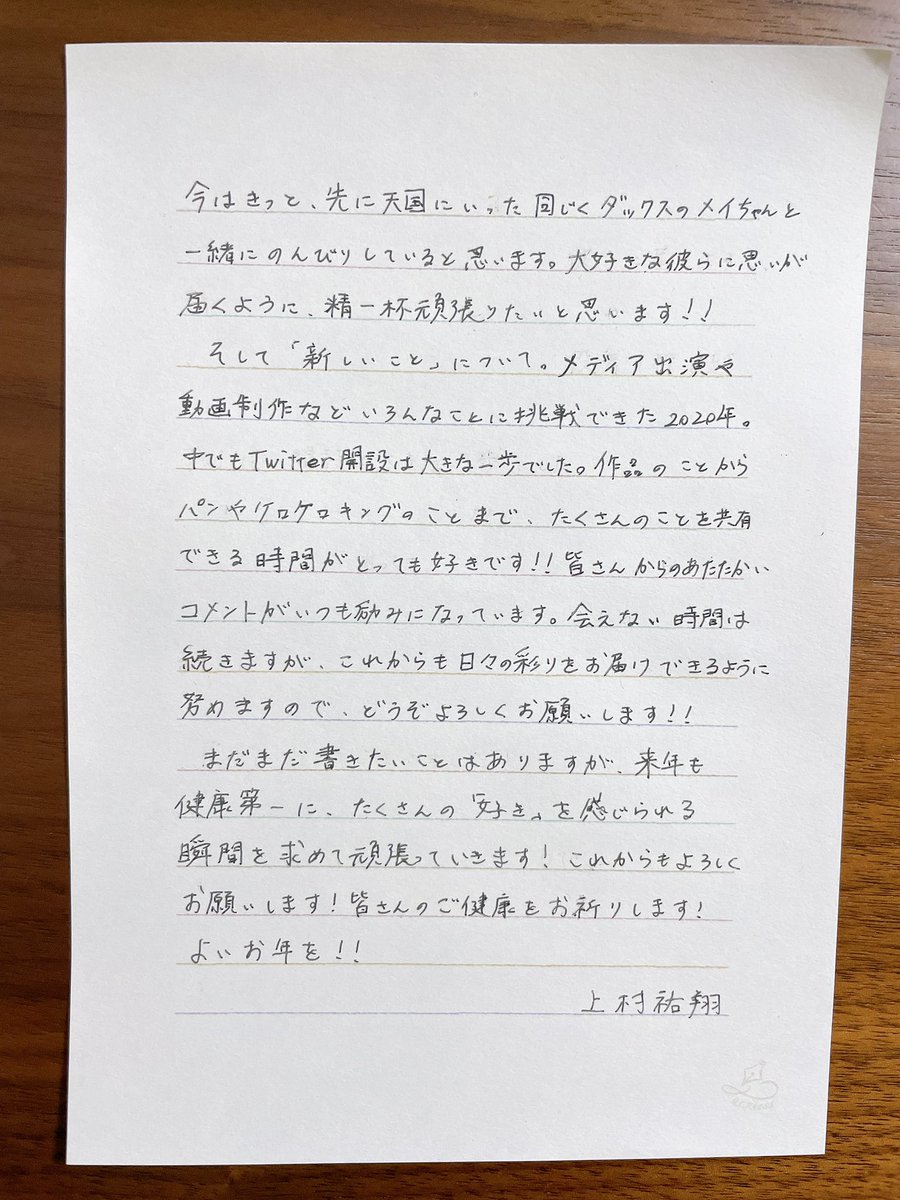 今はきっと、先に天国にいった同じくダックスのメイちゃんと
一緒にのんびりしていると思います。大好きな彼らに思いが
届くように、精一杯頑張りたいと思います!!
そして「新しいこと」について。メディア出演や
動画制作などいろんなことに挑戦できた2020年。
中でもTwitter開設は大きな一歩でした。作品のことから
パンやケロケロキングのことまで、たくさんのことを共有
できる時間がとっても好きです!!皆さんからのあたたかい
コメントがいつも励みになっています。会えない時間は
続きますが、これからも日々の彩りをお届けできるように
努めますので、どうぞよろしくお願いします!!
まだまだ書きたいことはありますが、来年も
健康第一に、たくさんの「好き」を感じられる
瞬間を求めて頑張っていきます!これからもよろしく
お願いします!皆さんのご健康をお祈りします!
よいお年を!!
上村祐翔